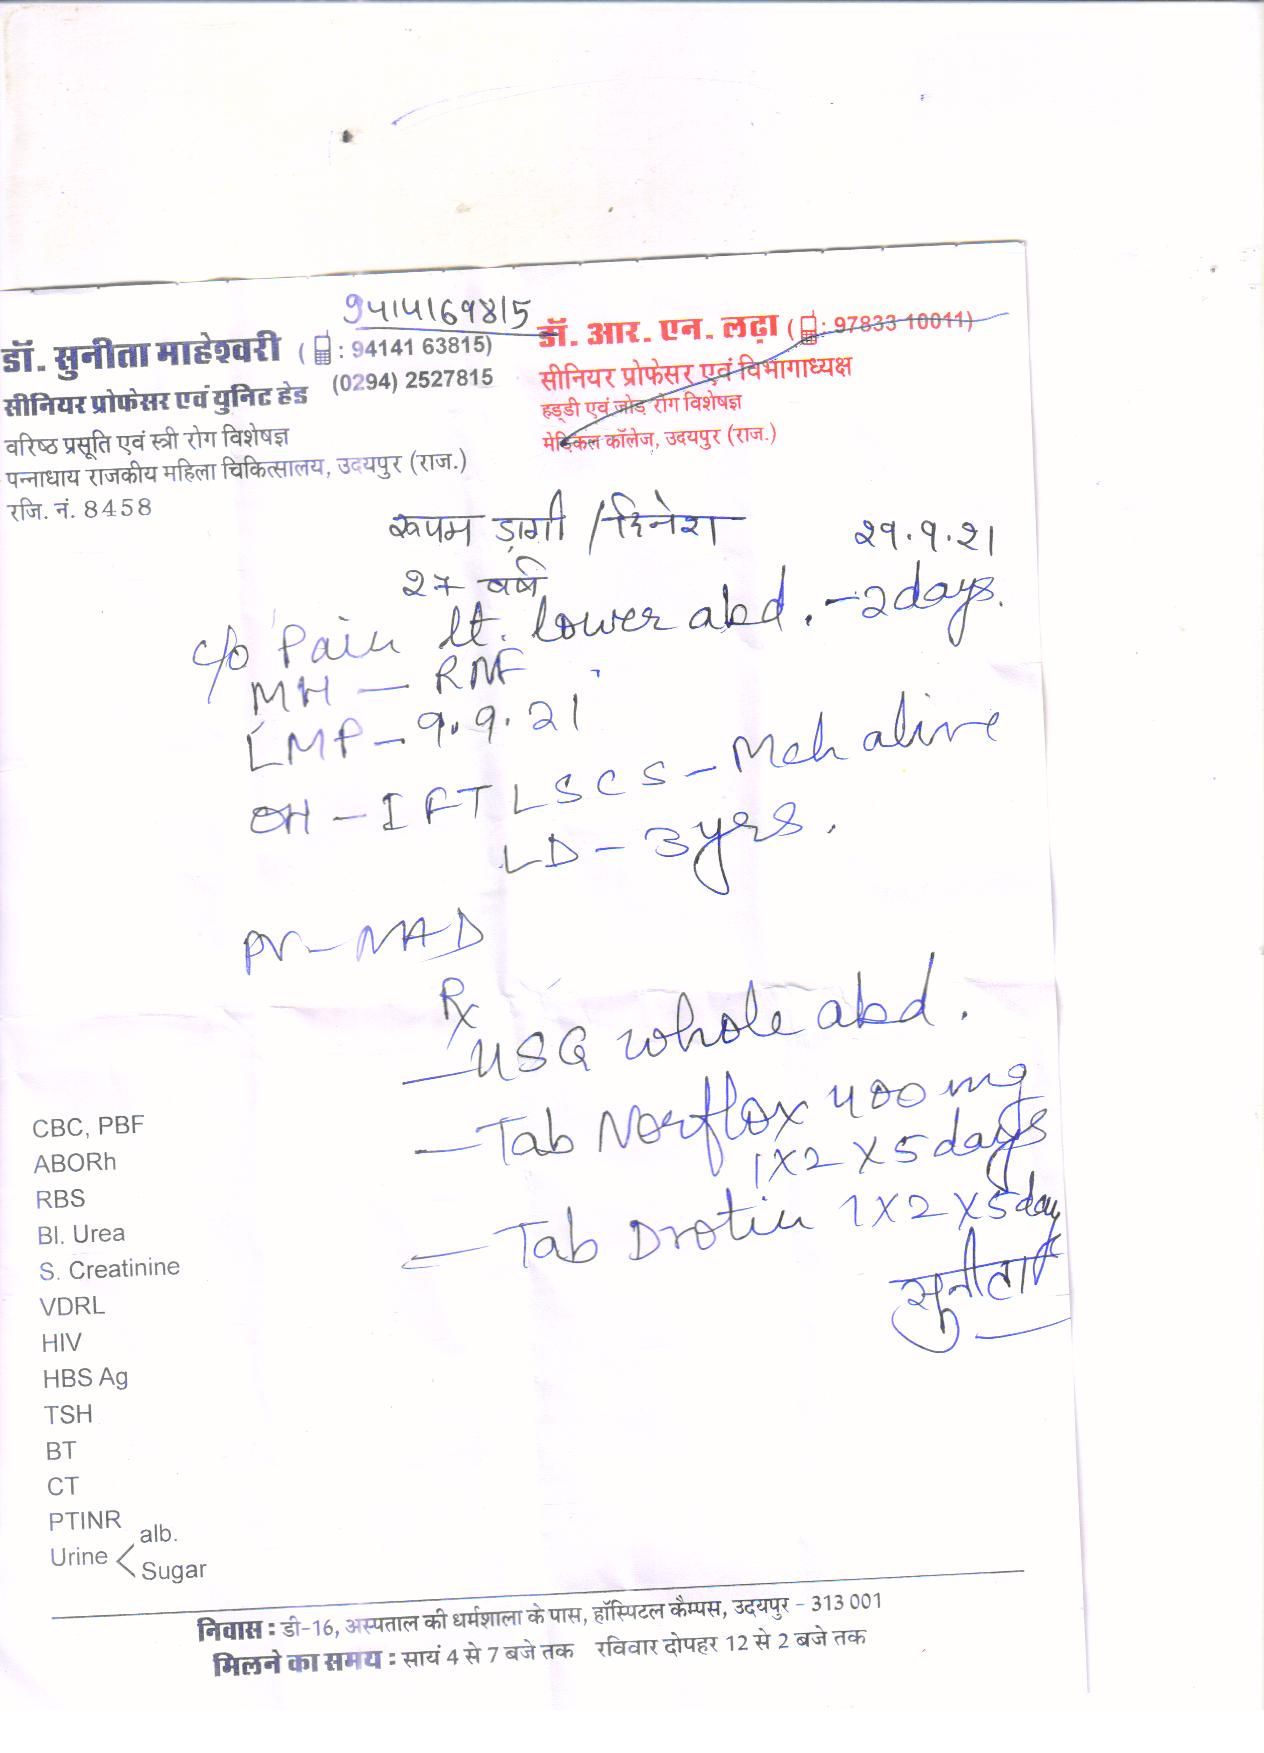 9414169815
डॉ. सुनीता माहेश्वरी ( : 94141 63815)
(0294) 2527815
सीनियर प्रोफेसर एवं युनिट हेड
वरिष्ठ प्रसूति एवं स्त्री रोग विशेषज्ञ
पन्नाधाय राजकीय महिला चिकित्सालय, उदयपुर (राज.)
रजि. नं. 8458
डॉ. आर. एन. लढ़ा ( : 97833 10011)
सीनियर प्रोफेसर एवं विभागाध्यक्ष
हड्डी एवं जोड़ रोग विशेषज्ञ
मेडिकल कॉलेज, उदयपुर (राज.)
रूपम डांगी / दिनेश
२९.९.२१
२७ वर्ष
c/o Pain lt. lower abd. - 2 days.
MH — RNF
LMP - 9.9.21
OH - I FT LSCS - Mch alive
LD - 3 yrs.
PV - NAD
Rx
- USG whole abd.
- Tab Norflox 400 mg
1 X 2 X 5 days
- Tab Drotin 1 X 2 X 5 day
सुनीता
CBC, PBF
ABORh
RBS
Bl. Urea
S. Creatinine
VDRL
HIV
HBS Ag
TSH
BT
CT
PTINR
Urine < alb.
Sugar
निवास : डी-16, अस्पताल की धर्मशाला के पास, हॉस्पिटल कैम्पस, उदयपुर - 313 001
मिलने का समय : सायं 4 से 7 बजे तक रविवार दोपहर 12 से 2 बजे तक